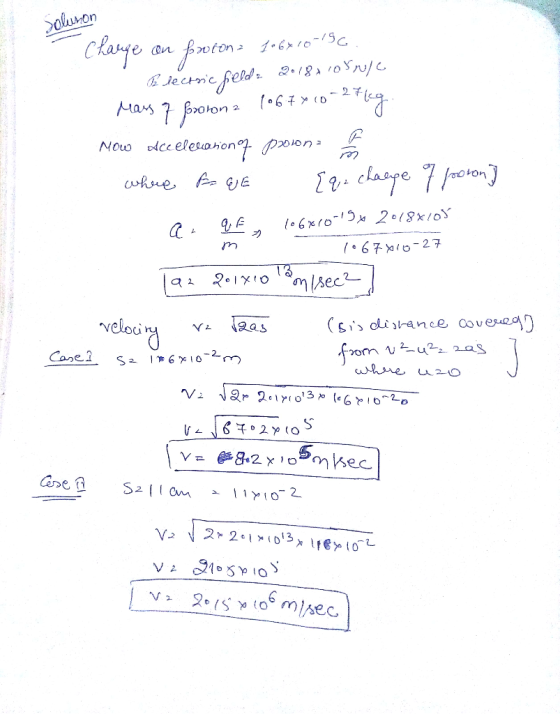 Solution
Charge on proton = 1.6×10-19C
Electric field = 2.18×105N/C
Mass of proton = 1.67×10-27kg.
Now acceleration of proton = F/m
where F = qE [q = charge of proton]
a = qE/m ⇒ 1.6×10-19 × 2.18×105 / 1.67×10-27
a = 2.1×10 13 m/sec2
Velocity v = √2as (s is distance covered)
Case I s = 1.6×10-2m from v2-u2 = 2as
where u=0
V = √2× 2.1×1013 × 1.6×10-2
V = √67.2×105
V = 8.2×105 m/sec
Case II S = 11 cm = 11×10-2
V = √2×2.1×1013×11×10-2
V = 21.5×105
V = 2.15×106 m/sec